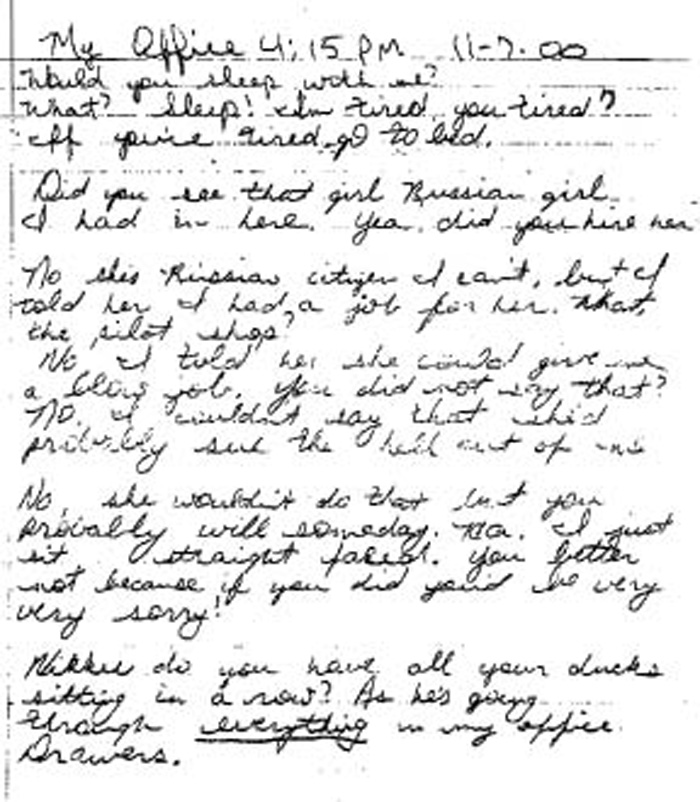 My Office 4:15 PM 11-7-00
Would you sleep with me?
What? Sleep! I'm tired, you tired?
If you're tired, go to bed.
Did you see that girl Russian girl
I had in here. Yea, did you hire her
No she's Russian citizen I can't, but I
told her I had a job for her. What,
the pilot shop?
No I told her she could give me
a blow job. You did not say that?
No, I couldn't say that she'd
probably sue the hell out of me
No, she wouldn't do that but you
probably will someday. I just
sit straight faced. You better
not because if you did you'd be very
very sorry!
Nikki do you have all your ducks
sitting in a row? As he's going
through everything in my office
Drawers.